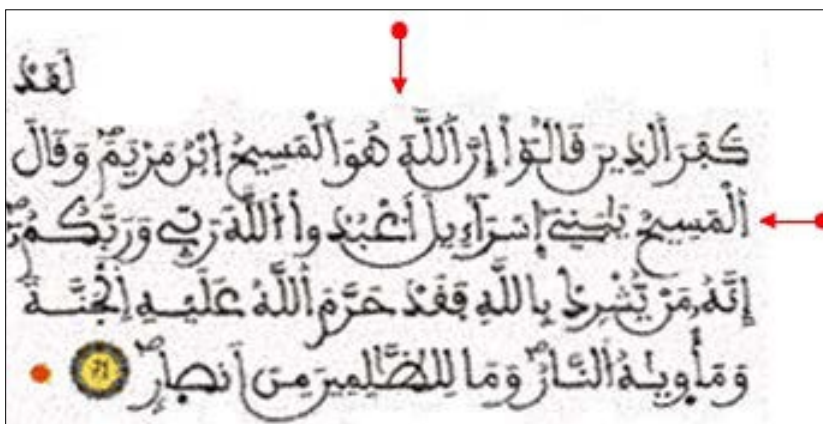 لَقَدْ
كَفَرَ اَلذِينَ قَالُوٓاْ إِنَّ اَللَّهَ هُوَ اَلْمَسِيحُ اُبْنُ مَرْيَمَۖ وَقَالَ
اَلْمَسِيحُ يَٰبَنِےٓ إِسْرَآءِيلَ اَعْبُدُواْ اَللَّهَ رَبِّے وَرَبَّكُمُۥٓۖ
إِنَّهُۥ مَنْ يُّشْرِكْ بِاللَّهِ فَقَدْ حَرَّمَ اَللَّهُ عَلَيْهِ اِلْجَنَّةَ
وَمَأْوَيٰهُ اُلنَّارُۖ وَمَا لِلظَّٰلِمِينَ مِنَ اَنصٰارٖۖ